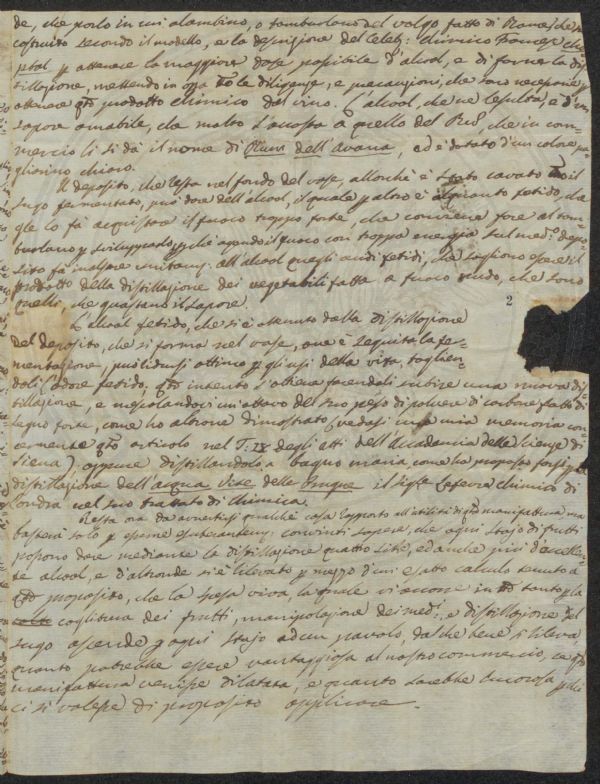 de, che porlo in un alambino, o tamburlano del volgo fatto di Rame, che
costruito secondo il modello, e la descrizione del Celeb: chimico Francese Cha=
ptal p ottenere la maggiore dose possibile d'alcool, e di farne la di=
stillazione, mettendo in opa tte le diligenze, e precauzioni, che sono necessarie p
ottenere qto prodotto chimico dal vino. L'alcool, che ne resulta, è d'un
sapore amabile, che molto s'accosta a quello del Rhū, che in com=
mercio li si dà il nome di Rhum dell'Avana, ed è dotato d'un colore pa=
glierino chiaro.
Il deposito, che resta nel fondo del vaso, allorchè è stato cavato tto il
sugo fermentato, può dare dell'alcool, il quale p altro è alquanto fetido, da=
gle lo fà acquistare il fuoco troppo forte, che conviene fare al tam=
burlano p svilupparlo, pchè agendo il fuoco con troppa energia sul medo depo=
sito fà inalzare unitamte all'alcool quegli acidi fetidi, che sogliono essere il
prodotto della distillazione dei vegetabili fatta a fuoco nudo, che sono
quelli, che guastano il sapore.
2
L'alcool fetido, che si è ottenuto dalla distillazione
del deposito, che si forma nel vaso, ove è seguita la fer=
mentazione, può ridursi ottimo p gli usi della vita, toglien=
doli l'odore fetido, qto intento s'ottiene facendoli subire una nuova di=
stillazione, e mescolandoci un ottavo del suo peso di polvere di carbone fatto di
legno forte, come ho altrove dimostrato (vedasi una mia memoria con=
cernente qto articolo nel T: IX degli atti dell'Accademia delle Scienze di
Siena), oppure distillandolo a bagno maria, come ha proposto p la
distillazione dell'acqua Vite delle Prugne il Sigre Lefevre chimico di
Londra nel suo trattato di chimica.
Resta ora da avvertirsi qualche cosa rapporto all'utilità di qta manifattura ma
basterà solo p esserne esuberantemte convinti sapere, che ogni stajo di frutti
possono dare mediante la distillazione quattro libb, ed anche più d'eccellen=
te alcool, e d'altronde si è rilevato p mezzo d'un esatto calcolo tenuto a
qto proposito, che la spesa viva, la quale vi occorre in tto tanto p la
colta coglitura dei frutti, manipolazione dei medi, e distillazione del
sugo ascende p ogni stajo ad un pavolo, dal che bene si rileva
quanto potrebbe essere vantaggiosa al nostro commercio, se qta
manifattura venisse dilatata, e quanto sarebbe onorosa p chi
ci si volesse di proposito applicare.